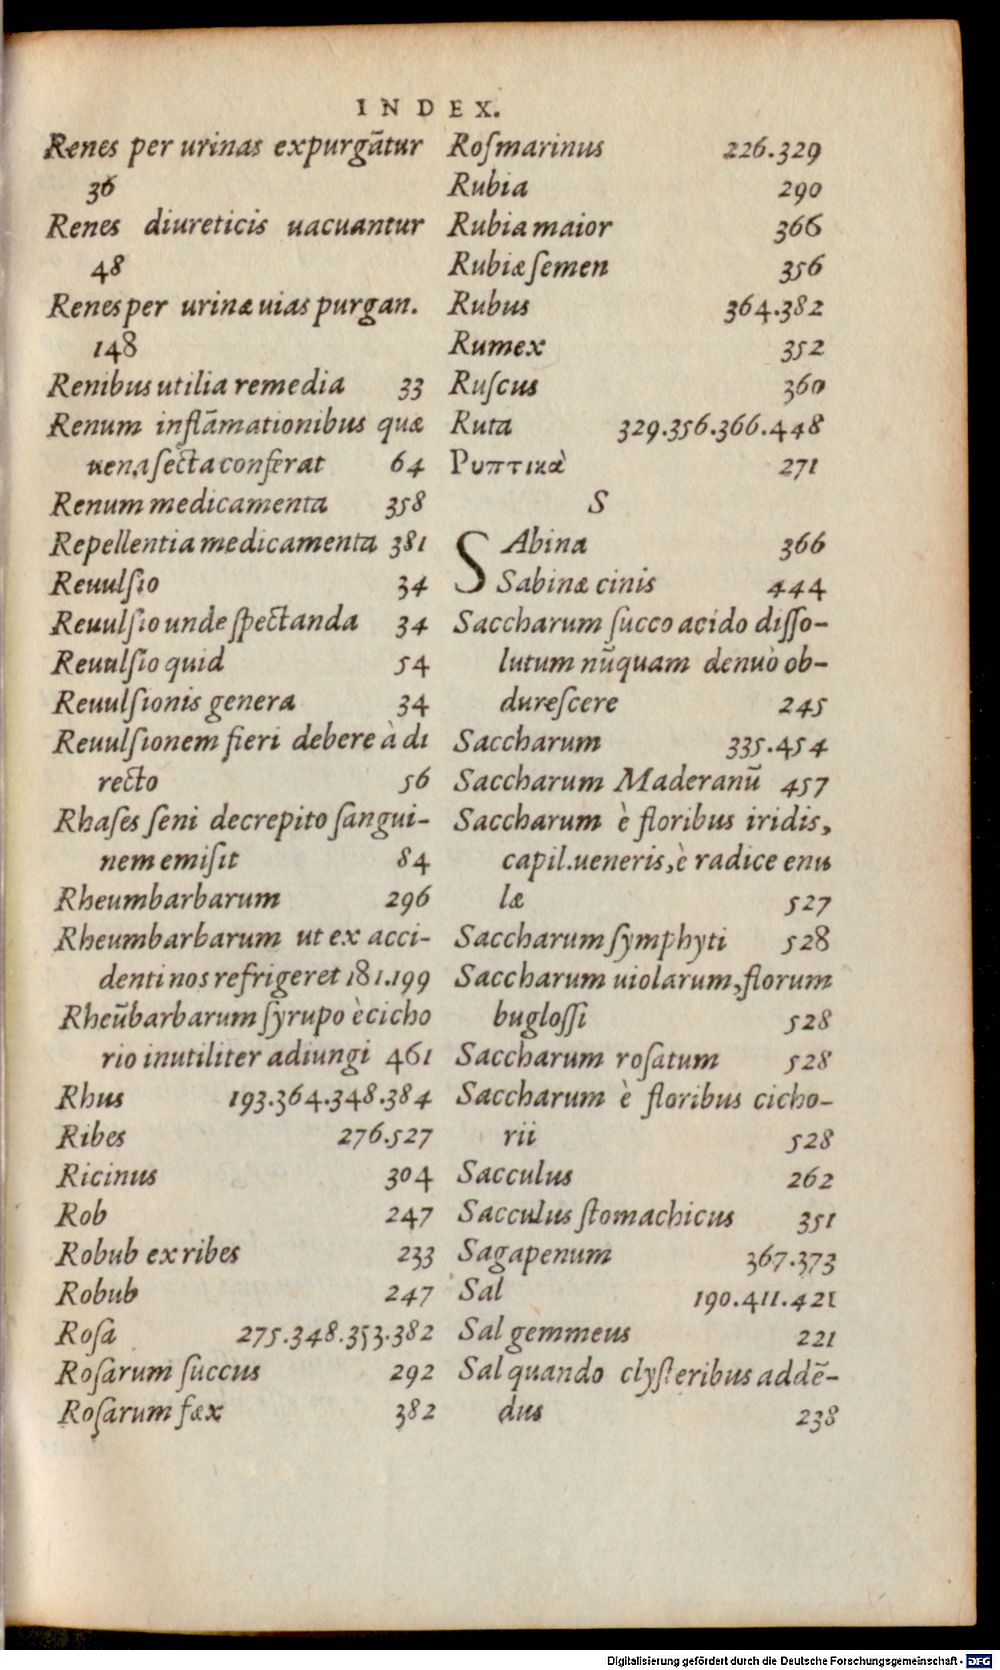 INDEX.
Renes per urinas expurgātur
36
Renes diureticis uacuantur
48
Renes per urinæ uias purgan.
148
Renibus utilia remedia 33
Renum inflāmationibus quæ
uena ſecta conferat 64
Renum medicamenta 358
Repellentia medicamenta 381
Reuulſio 34
Reuulſio unde ſpectanda 34
Reuulſio quid 54
Reuulſionis genera 34
Reuulſionem fieri debere à di
recto 56
Rhaſes ſeni decrepito ſangui-
nem emiſit 84
Rheumbarbarum 296
Rheumbarbarum ut ex acci-
denti nos refrigeret 181.199
Rheūbarbarum ſyrupo è cicho
rio inutiliter adiungi 461
Rhus 193.364.348.384
Ribes 276.527
Ricinus 304
Rob 247
Robub ex ribes 233
Robub 247
Roſa 275.348.353.382
Roſarum ſuccus 292
Roſarum fæx 382
Roſmarinus 226.329
Rubia 290
Rubia maior 366
Rubiæ ſemen 356
Rubus 364.382
Rumex 352
Ruſcus 360
Ruta 329.356.366.448
Ρυπτικὰ 271
S
SAbina 366
Sabinæ cinis 444
Saccharum ſucco acido diſſo-
lutum nūquam denuò ob-
dureſcere 245
Saccharum 335.454
Saccharum Maderanū 457
Saccharum è floribus iridis,
capil.ueneris, è radice enu
læ 527
Saccharum ſymphyti 528
Saccharum uiolarum, florum
bugloſſi 528
Saccharum roſatum 528
Saccharum è floribus cicho-
rii 528
Sacculus 262
Sacculus ſtomachicus 351
Sagapenum 367.373
Sal 190.411.421
Sal gemmeus 221
Sal quando clyſteribus addē-
dus 238
Digitalisierung gefördert durch die Deutsche Forschungsgemeinschaft - DFG